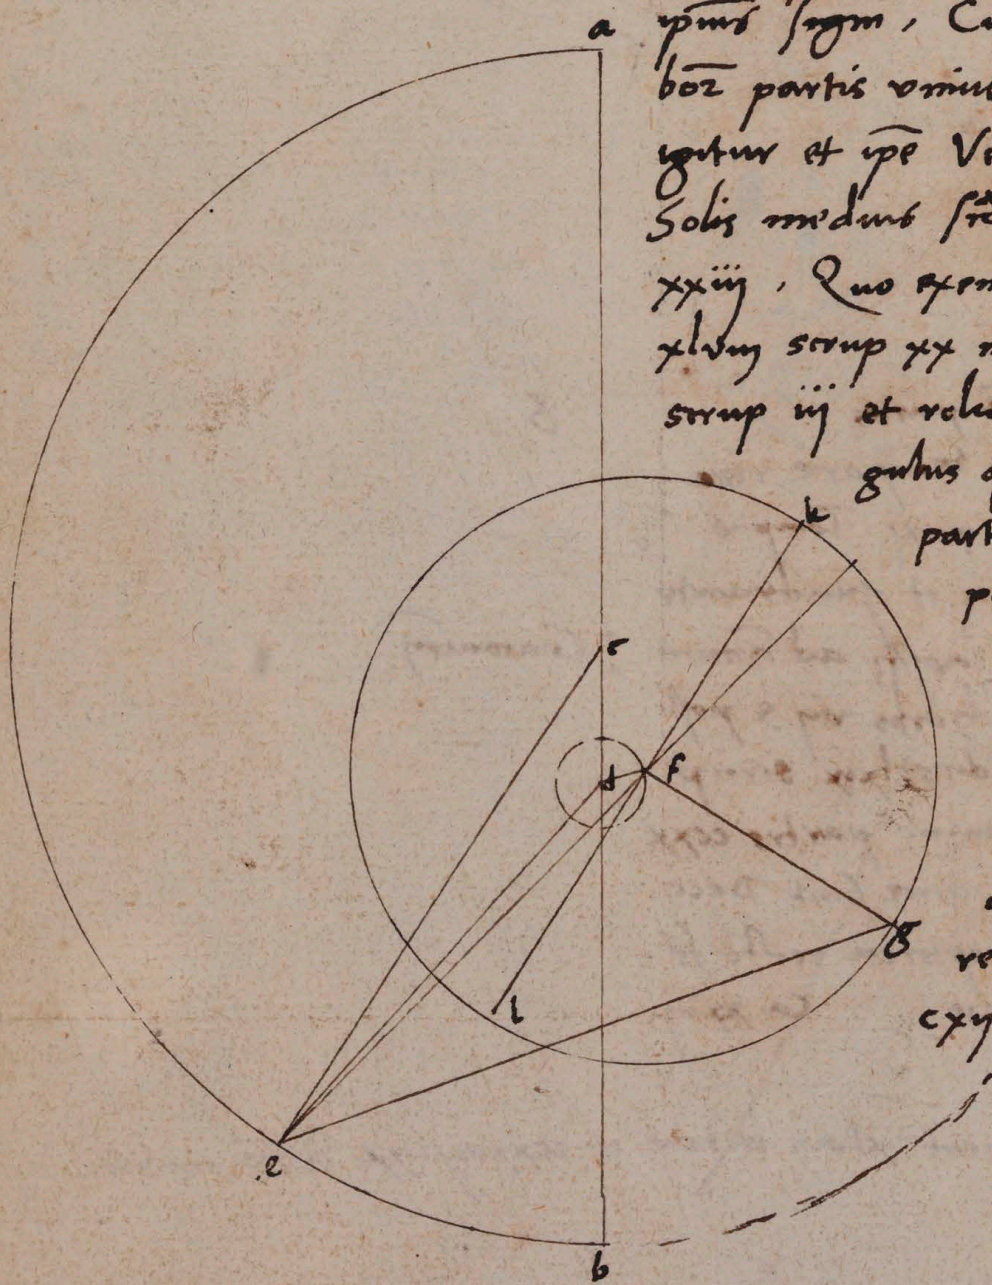 a
ipius sign, Cu
borz partis vnius
igitur et ipe Ve
Solis medius
xxiij. Quo exem
xlviij scrup xx
scrup iij et reli
gulus
k
part
p
c
d
f
g
re
l
cxij
e
b